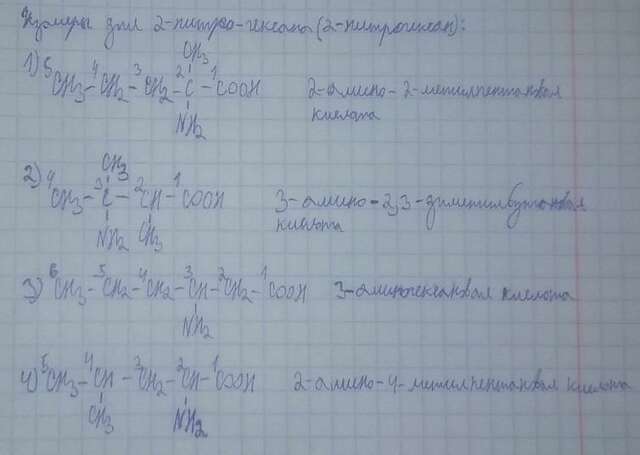 Изомеры для 2-нитро-гексана (2-нитрогексан):
CH3
1) 5CH3-4CH2-3CH2-2C-1COOH 2-амино-2-метилпентановая
NH2 кислота
CH3
2) 4CH3-3C-2CH-1COOH 3-амино-2,3-диметилбутановая
NH2 CH3 кислота
3) 6CH3-5CH2-4CH2-3CH-2CH2-1COOH 3-аминогексановая кислота
NH2
4) 5CH3-4CH-3CH2-2CH-1COOH 2-амино-4-метилпентановая кислота
CH3 NH2